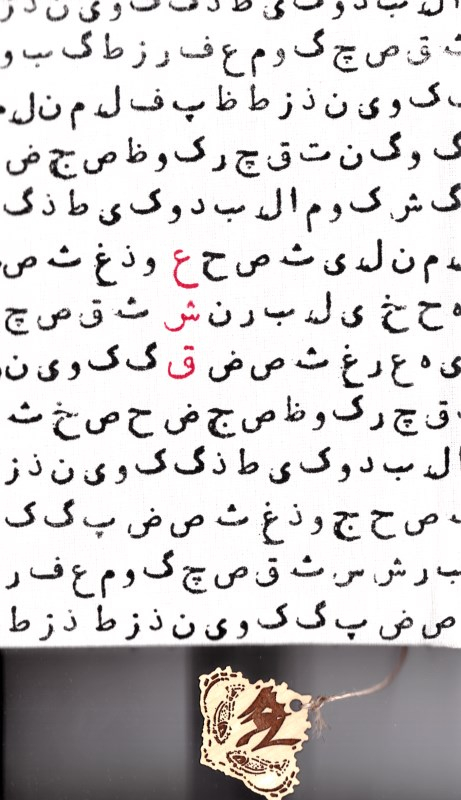 ا ل ب د و ک ی ط ذ گ ک و ی ن ذ ز
ث ق ص چ گ و م ع ف ر ز ط گ ب و
ک و ی ن ذ ز ط ظ پ ف ل م ن ل م
گ و گ ن ت ق چ ر ک و ظ ص ج ض
گ ش ک و م ا ل ب د و ک ی ط ذ گ
ل م ن ل ی ث ص ح ع و ذ غ ث ص
ه ح خ ی ل ب ر ن ش ث ق ص چ
ی ه ع ر غ ث ص ض ق گ ک و ی ن
ق چ ر ک و ظ ص ج ض ح ص خ ث
ا ل ب د و ک ی ط ذ گ ک و ی ن ذ ز
ص ح ج و ذ غ ث ص ض پ گ ک
ب ر ش س ث ق ص چ گ و م ع ف ر
ص ض پ گ ک و ی ن ذ ز ط ذ ز ط